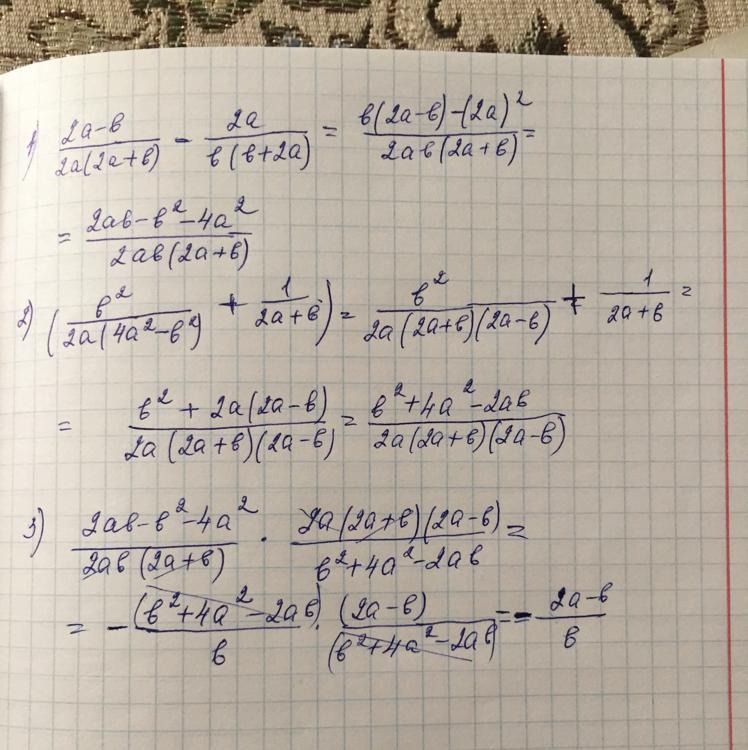 1) (2a-в)/(2a(2a+в)) - 2a/(в(в+2a)) = (в(2a-в)-(2a)²)/(2aв(2a+в)) =
= (2aв-в²-4a²)/(2aв(2a+в))
2) (в²/(2a(4a²-в²)) + 1/(2a+в)) = в²/(2a(2a+в)(2a-в)) + 1/(2a+в) =
= (в²+2a(2a-в))/(2a(2a+в)(2a-в)) = (в²+4a²-2aв)/(2a(2a+в)(2a-в))
3) (2aв-в²-4a²)/(2aв(2a+в)) · (2a(2a+в)(2a-в))/(в²+4a²-2aв) =
= -(в²+4a²-2aв)/в · (2a-в)/(в²+4a²-2aв) = -(2a-в)/в